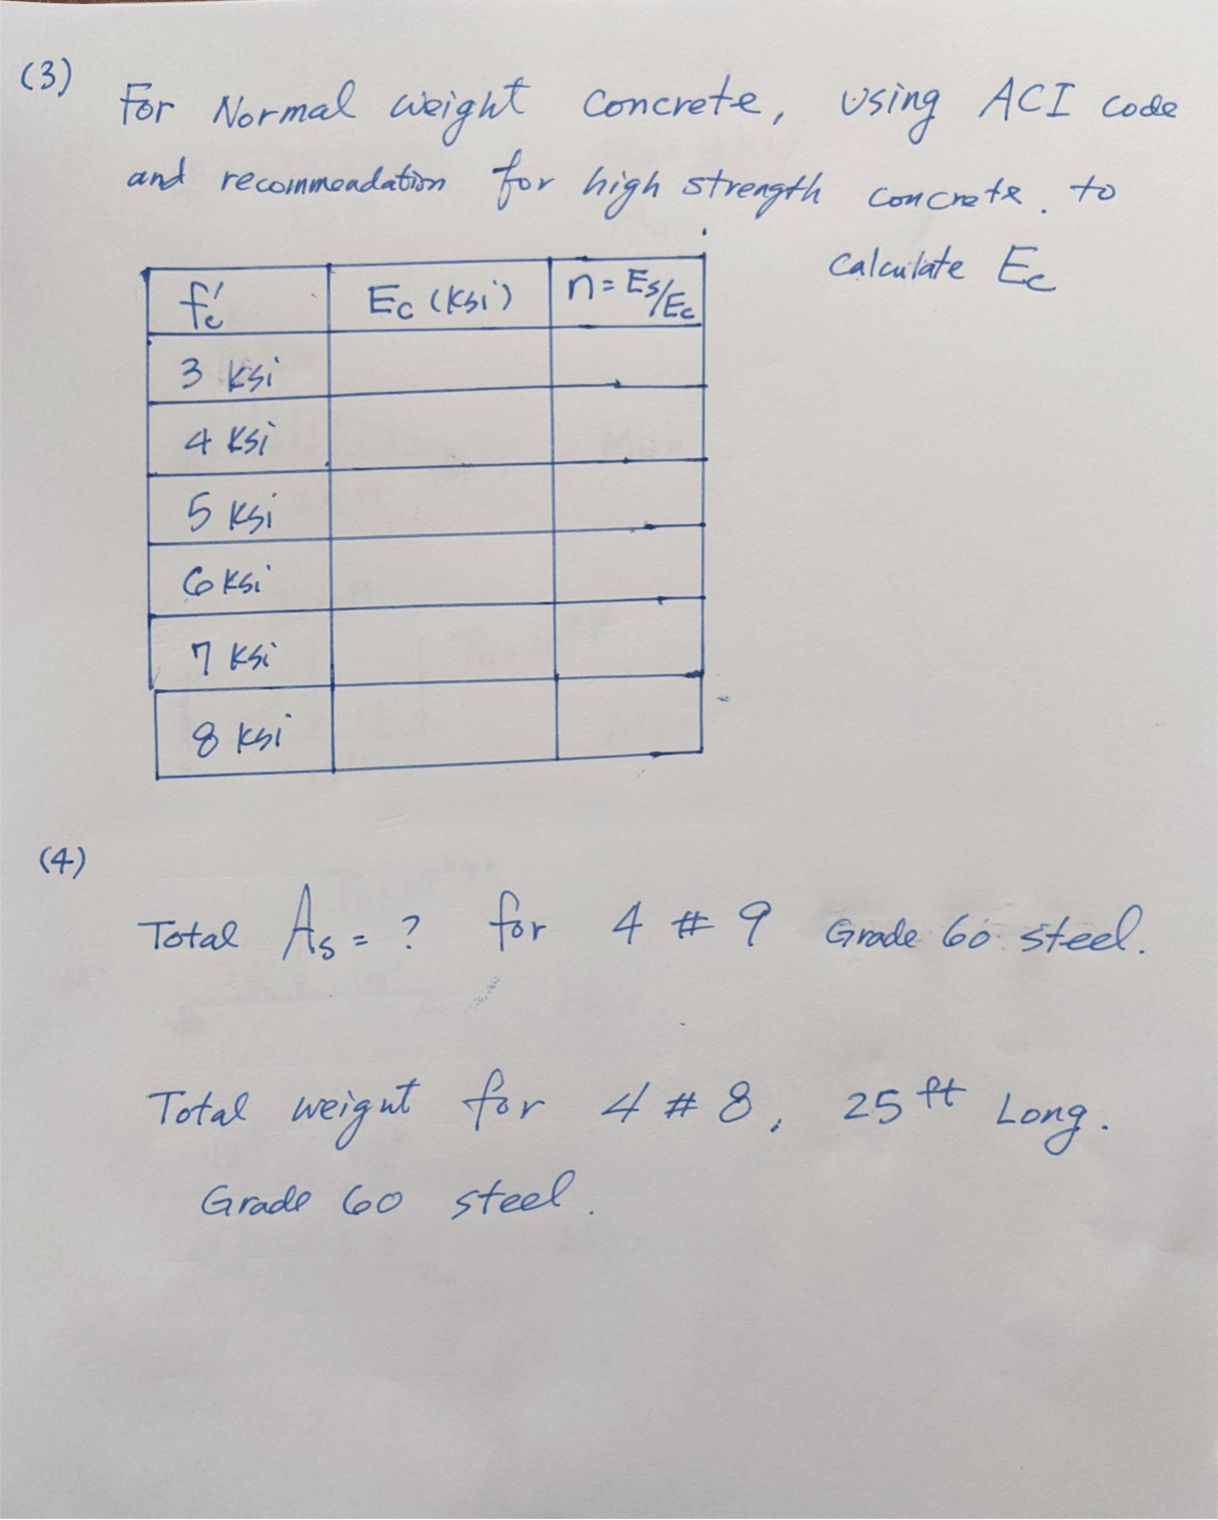 (3)
For Normal weight concrete, using ACI code
and recommendation for high strength concrete. to
calculate Ec
f'c Ec (ksi) n = Es/Ec
3 ksi
4 ksi
5 ksi
6 ksi
7 ksi
8 ksi
(4)
Total As = ? for 4 # 9 Grade 60 steel.
Total weignt for 4 # 8, 25 ft Long.
Grade 60 steel.